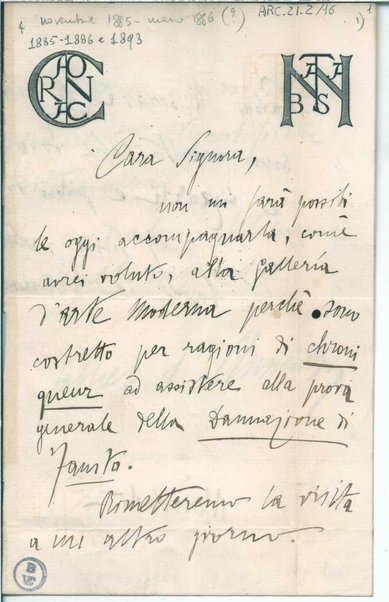 novembre 1885 - marzo 1886 (?)
ARC.21.2/16
1)
1885-1886 e 1893
Cara Signora,
non mi sarà possibi
le oggi accompagnarla, com'è
avrei voluto, alla galleria
d'arte moderna perchè sono
costretto per ragioni di chroni
queur ad assistere alla prova
generale della Dannazione di
Fausto.
Rimetteremo la visita
a un altro giorno.